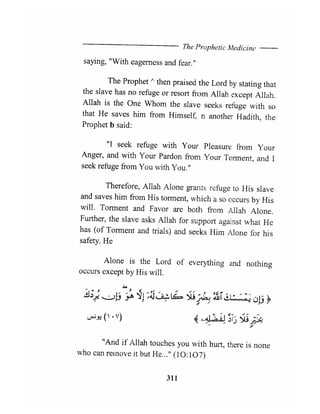 The Prophetic Medicine
saying, "With eagerness and fear."
The Prophet ^ then praised the Lord by stating that
the slave has no refuge or resort from Allah except Allah.
Allah is the One Whom the slave seeks refuge with so
that He saves him from Himself, n another Hadith, the
Prophet b said:
"I seek refuge with Your Pleasure from Your
Anger, and with Your Pardon from Your Torment, and I
seek refuge from You with You."
Therefore, Allah Alone grants refuge to His slave
and saves him from His torment, which a so occurs by His
will. Torment and Favor are both from Allah Alone.
Further, the slave asks Allah for support against what He
has (of Torment and trials) and seeks Him Alone for his
safety. He
Alone is the Lord of everything and nothing
occurs except by His will.
﴿ وَإِن يَمْسَسْكَ اللَّهُ بِضُرٍّ فَلَا كَاشِفَ لَهُ إِلَّا هُوَ وَإِن يُرِدْكَ
بِخَيْرٍ فَلَا رَادَّ لِفَضْلِهِ ﴾ (١٠٧) يونس
"And if Allah touches you with hurt, there is none
who can remove it but He..." (1O:1O7)
311